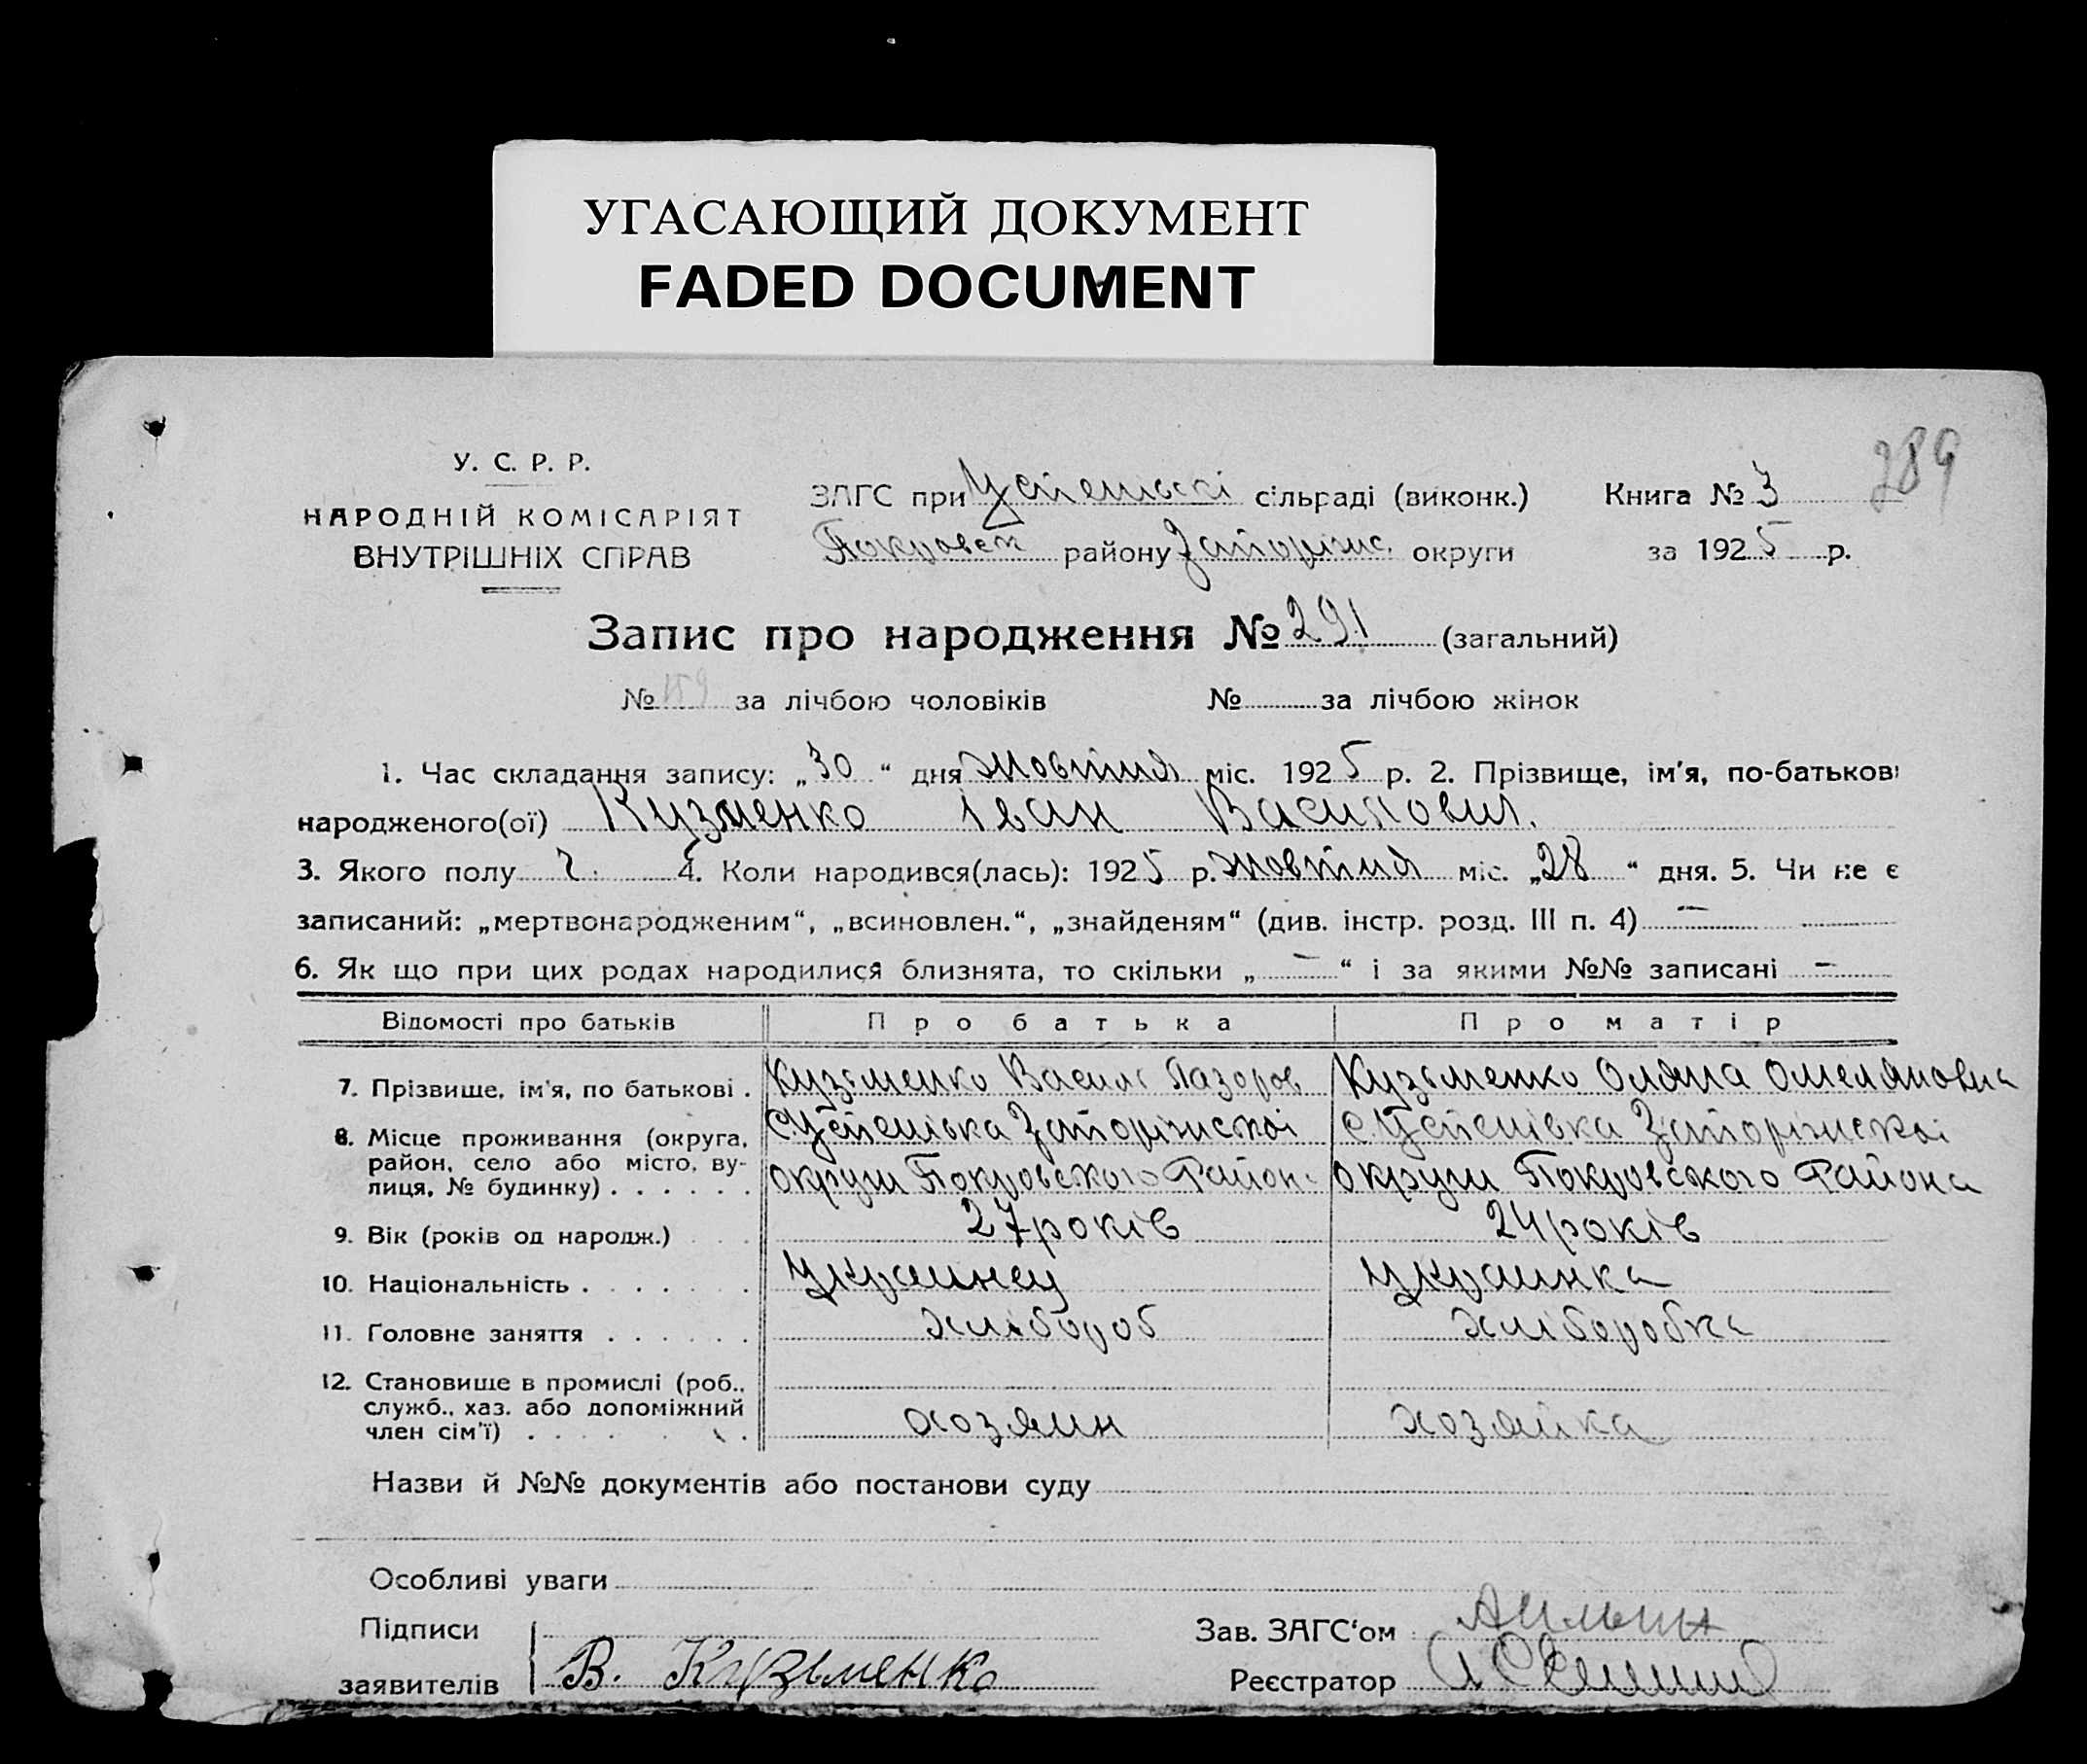 УГАСАЮЩИЙ ДОКУМЕНТ
FADED DOCUMENT
289
У. С. Р. Р.
НАРОДНІЙ КОМІСАРІЯТ
ВНУТРІШНІХ СПРАВ
ЗАГС при Успенські сільраді (виконк.) Книга № 3
Покровск району Запоріжс. округи за 1925 р.
Запис про народження № 291 (загальний)
№ 159 за лічбою чоловіків № за лічбою жінок
1. Час складання запису: „30“ дня жовтня міс. 1925 р. 2. Прізвище, ім'я, по-батькові
народженого(ої) Кузменко Іван Василович.
3. Якого полу ч. 4. Коли народився(лась): 1925 р. жовтня міс. „28“ дня. 5. Чи не є
записаний: „мертвонародженим“, „всиновлен.“, „знайденям“ (див. інстр. розд. III п. 4) —
6. Як що при цих родах народилися близнята, то скільки „—“ і за якими №№ записані —
Відомості про батьків Про батька Про матір
7. Прізвище, ім'я, по батькові . Кузьменко Василь Лазоров Кузьменко Оляна Омеляновна
8. Місце проживання (округа, с. Успенівка Запоріжскоі с. Успенівка Запоріжскоі
район, село або місто, ву-
лиця, № будинку) . . . . . . округи Покровского Района округи Покровского Района
9. Вік (років од народж.) . . . 27 років 24 років
10. Національність . . . . . . . украинец украинка
11. Головне заняття . . . . . . хлібороб хліборобка
12. Становище в промислі (роб.,
служб., хаз. або допоміжний
член сім'ї) . . . . . . . хозяин хозяйка
Назви й №№ документів або постанови суду
Особливі уваги
Підписи Зав. ЗАГС'ом
заявителів В. Кузьменко Реєстратор